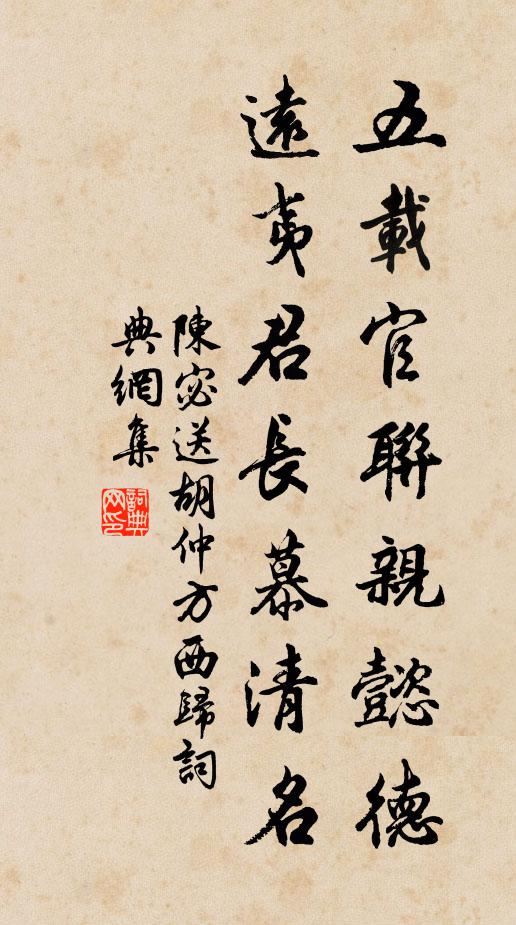 五載官聯親懿德
遠夷君長慕清名
陳宓送胡仲方西歸詞
典網集
詞典網印